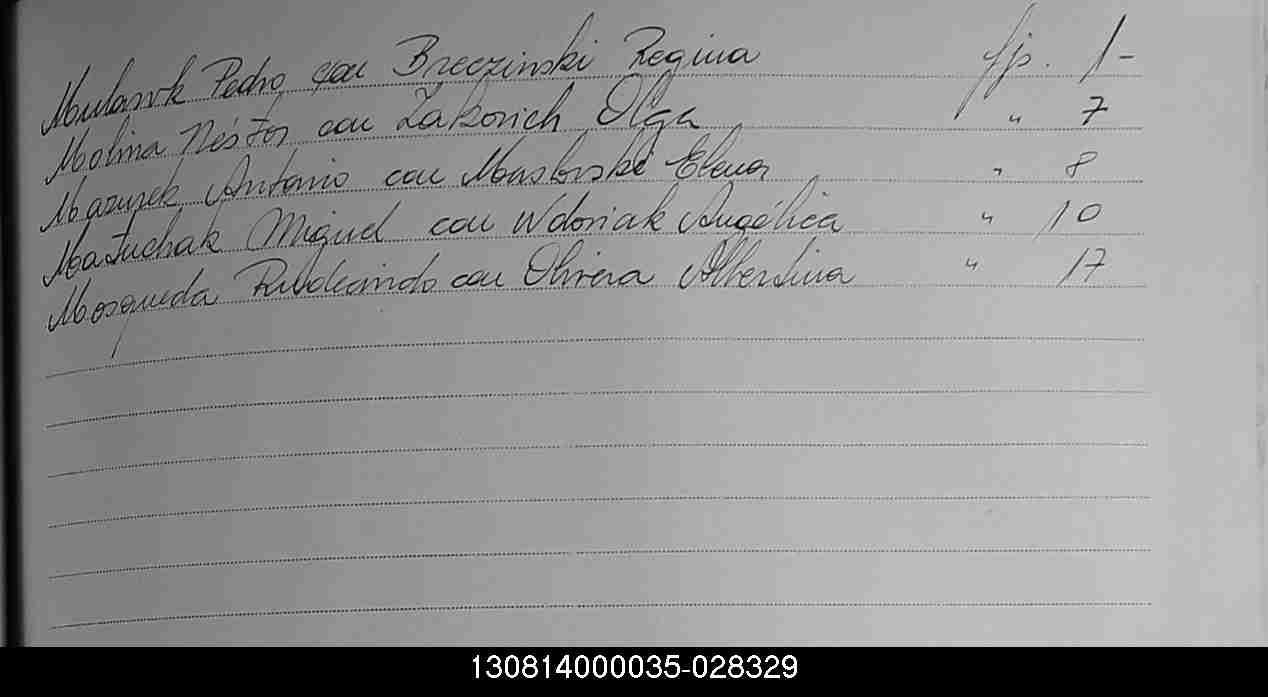 Mularvk Pedro con Breczinski Regina fjs. 1-
Molina Néstor con Zakovich Olga " 7
Mazurek Antonio con Maslovski Elena " 8
Matuchak Miguel con Wdoviak Angélica " 10
Mosqueda Rudecindo con Olivera Albertina " 17
130814000035-028329